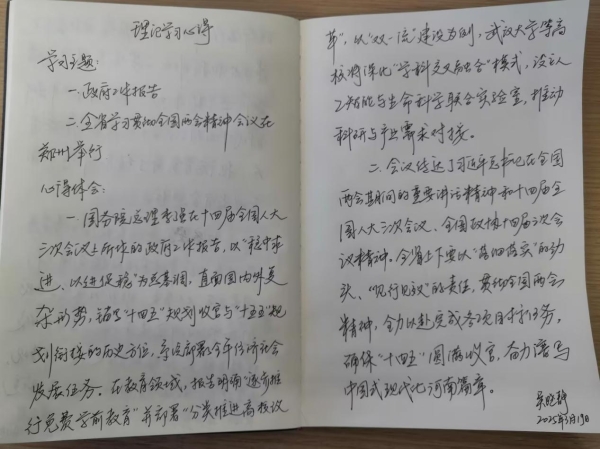 理论学习心得
学习主题:
一.政府工作报告
二.全省学习贯彻全国两会精神会议在
郑州举行
心得体会:
一.国务院总理李强在十四届全国人大
三次会议上所作的政府工作报告,以“稳中求
进、以进促稳”为总基调,直面国内外复
杂形势,锚定“十四五”规划收官与“十五五”规
划衔接的历史方位,系统部署今年经济社会
发展任务。在教育领域,报告明确“逐步推
行免费学前教育”并部署“分类推进高校改
革”,以“双一流”建设为例,武汉大学等高
校将深化“学科交叉融合”模式,设立人
工智能与生命科学联合实验室,推动
科研与产业需求对接。
二.会议传达了习近平总书记在全国
两会期间的重要讲话精神和十四届全
国人大三次会议、全国政协十四届三次会
议精神。全省上下要以“落细落实”的劲
头、“见行见效”的责任,贯彻全国两会
精神,全力以赴完成各项目标任务,
确保“十四五”圆满收官,奋力谱写
中国式现代化河南篇章。
2025年3月19日